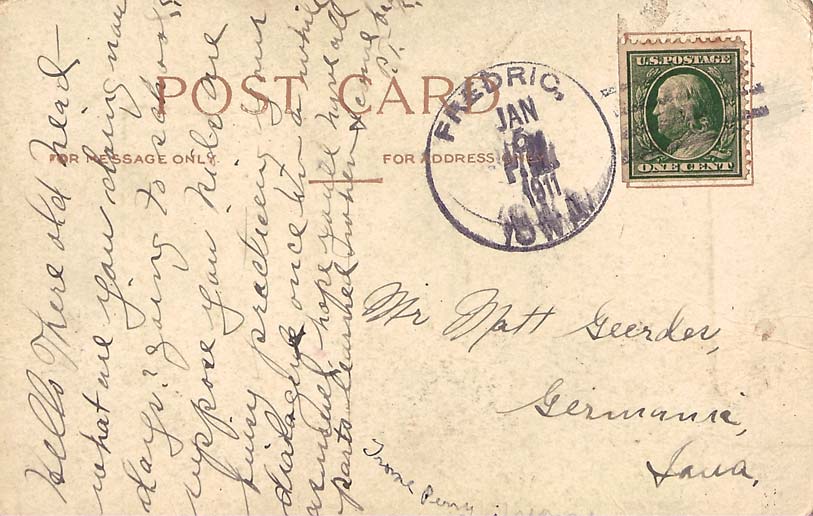 POST CARD
FOR MESSAGE ONLY
FOR ADDRESS ONLY
U.S. POSTAGE
ONE CENT
FREDRIC,
JAN
1911
IOWA
Hello There old head—
what are you doing now
days? Going to school?
suppose you kids are
busy practicing your
dialogue once in a while
hope you'll have all
parts learned when I come
Mr Matt Geerdes,
Germania,
Iowa,
From Perry